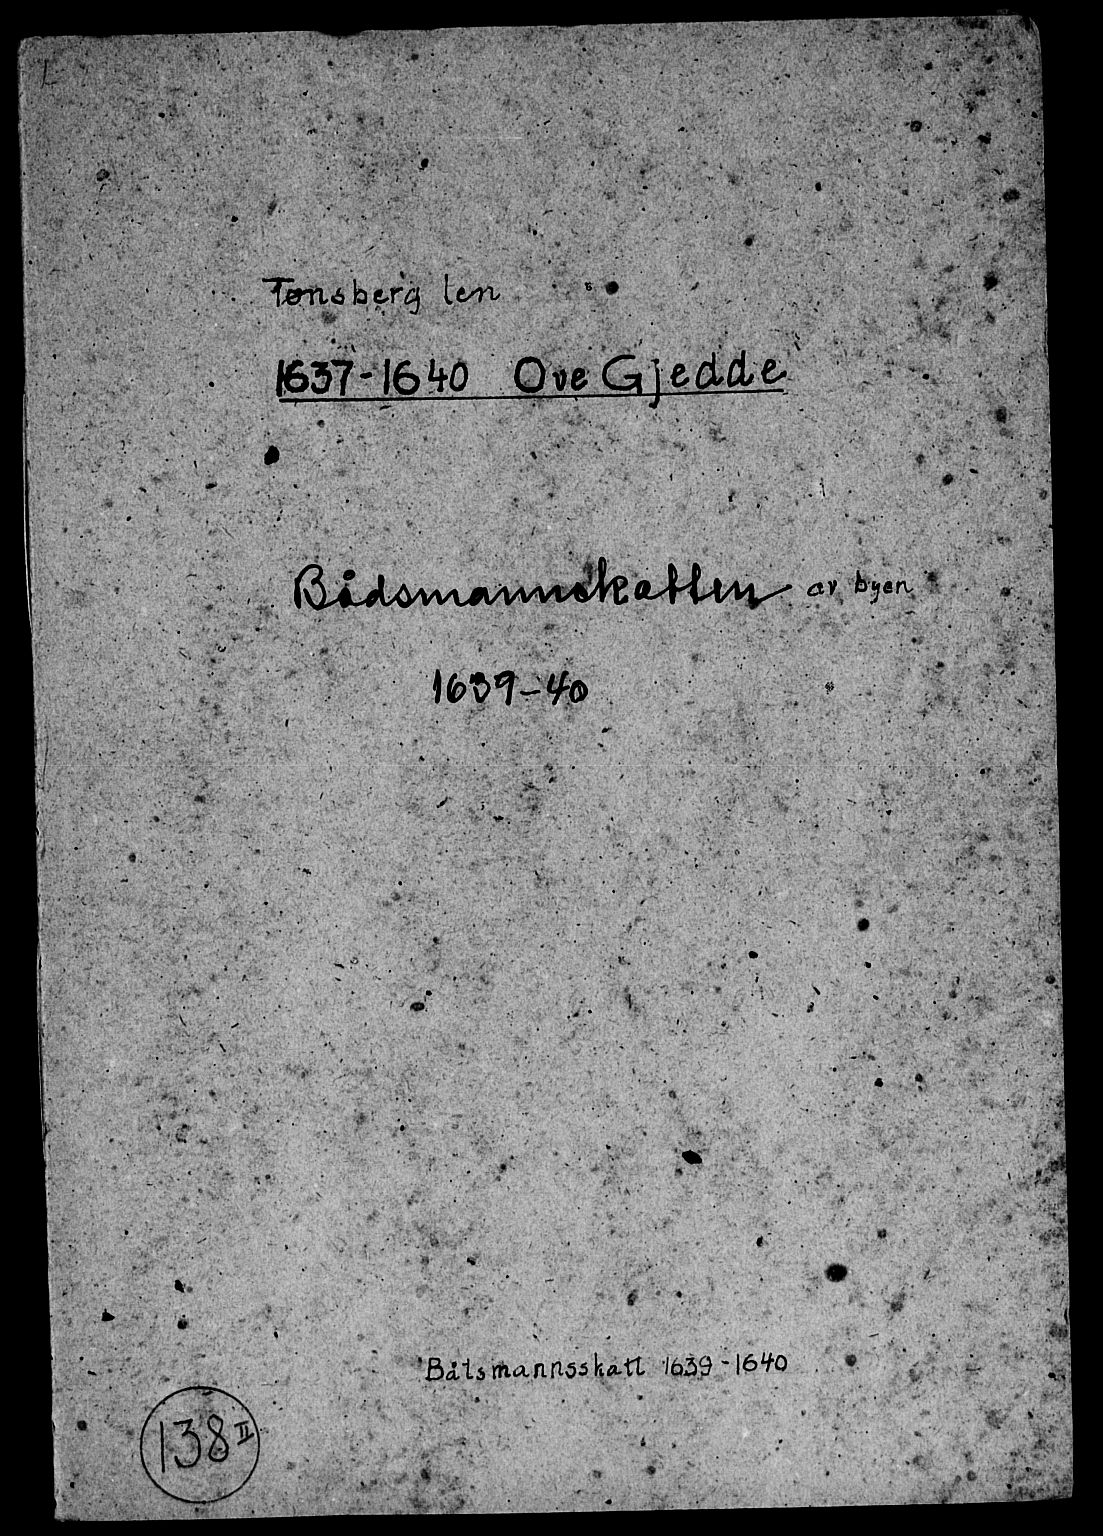 Tønsberg len
1637-1640 Ove Gjedde
Bådsmannskatten av byen
1639-40
Båtsmannsskatt 1639-1640
138 II